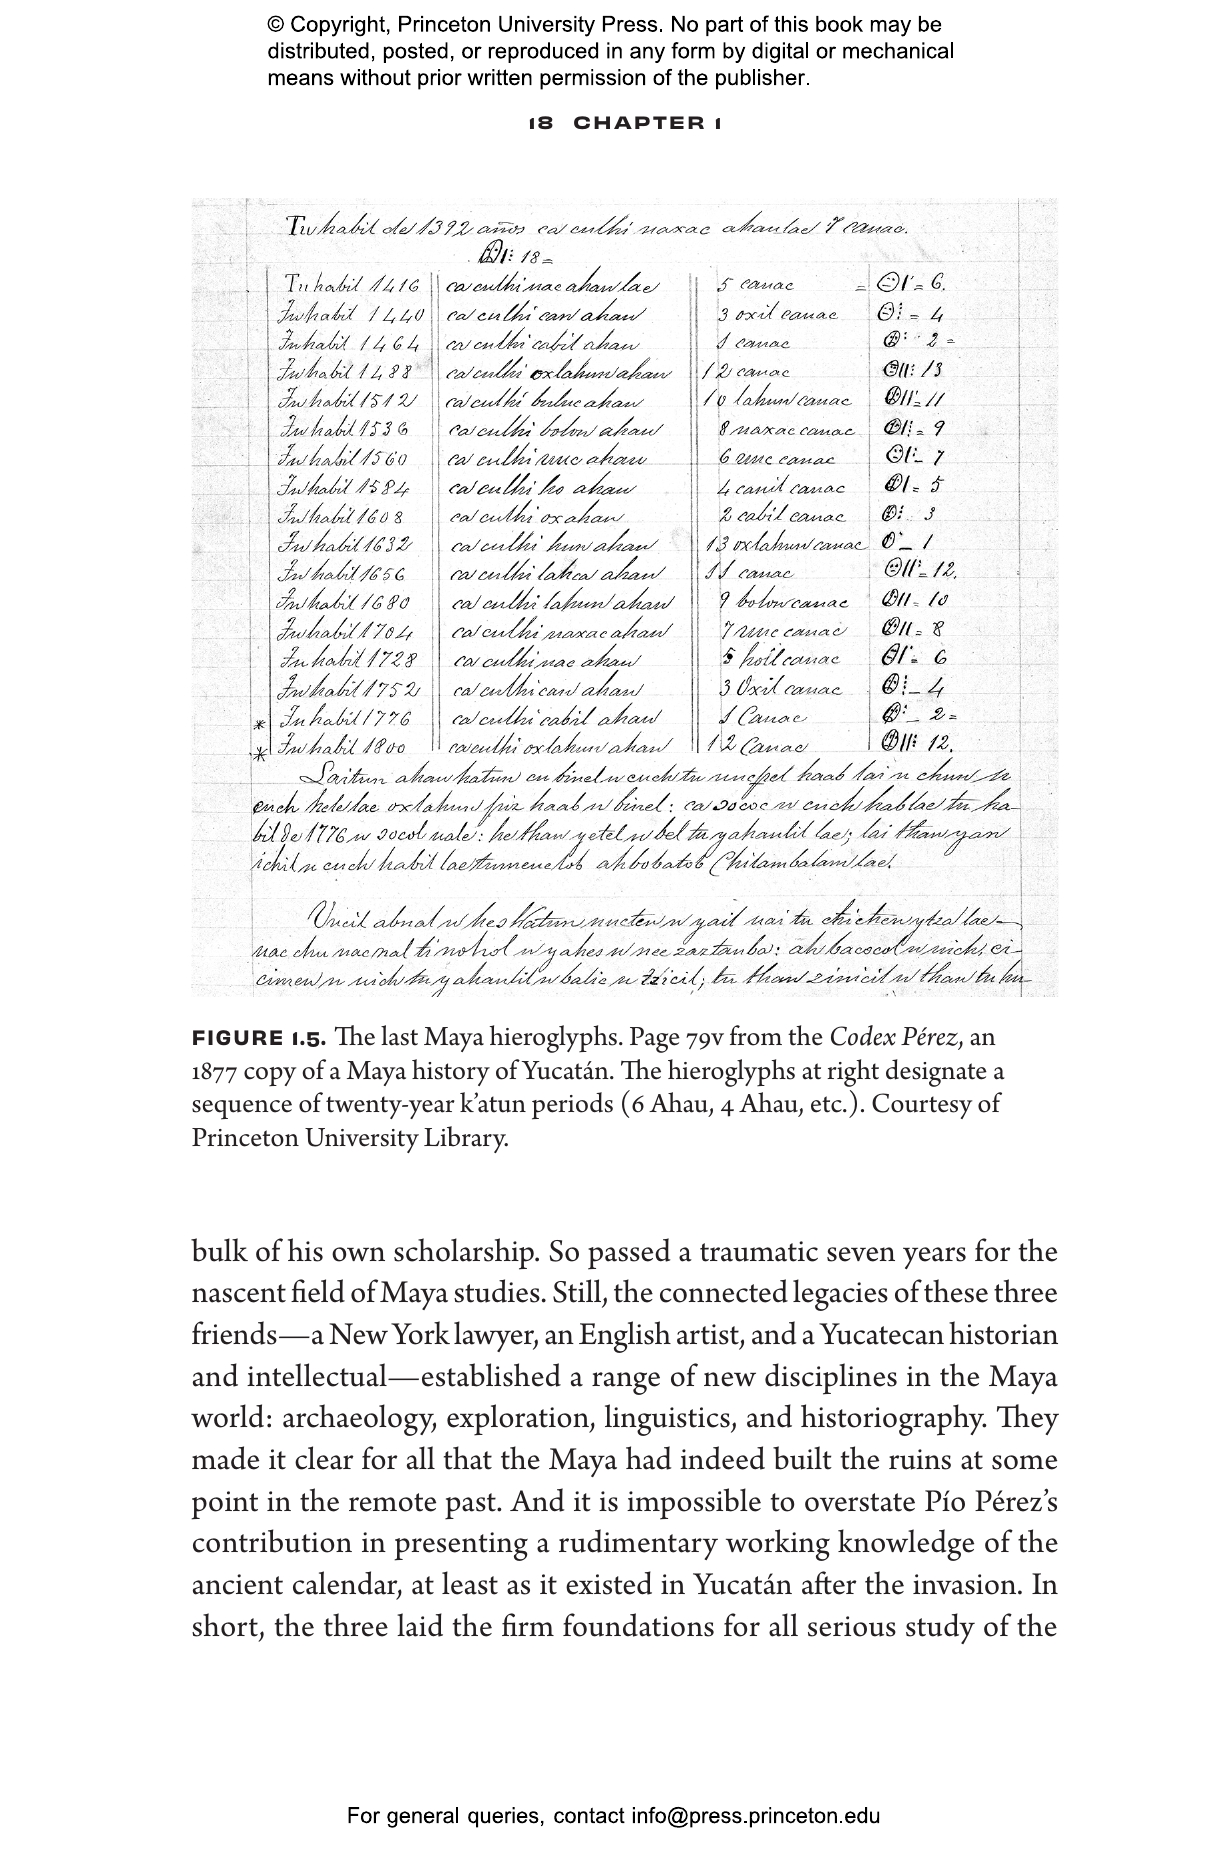 © Copyright, Princeton University Press. No part of this book may be
distributed, posted, or reproduced in any form by digital or mechanical
means without prior written permission of the publisher.
18 CHAPTER 1
Tu habil de 1392 años ca culhi uaxac ahau lae 7 canac.
18 =
Tu habil 1416 ca culhi uac ahau lae 5 canac = 6.
Tu habil 1440 ca culhi can ahau 3 oxil canac = 4
Tu habil 1464 ca culhi cabil ahau 1 canac 2 =
Tu habil 1488 ca culhi oxlahun ahau 12 canac 13
Tu habil 1512 ca culhi buluc ahau 10 lahun canac = 11
Tu habil 1536 ca culhi bolon ahau 8 uaxac canac = 9
Tu habil 1560 ca culhi uuc ahau 6 uuc canac 7
Tu habil 1584 ca culhi ho ahau 4 canil canac = 5
Tu habil 1608 ca culhi ox ahau 2 cabil canac 3
Tu habil 1632 ca culhi hun ahau 13 oxlahun canac 1
Tu habil 1656 ca culhi lahca ahau 11 canac = 12.
Tu habil 1680 ca culhi lahun ahau 9 bolon canac = 10
Tu habil 1704 ca culhi uaxac ahau 7 uuc canac = 8
Tu habil 1728 ca culhi uac ahau 5 hoil canac = 6
Tu habil 1752 ca culhi can ahau 3 Oxil canac 4
* Tu habil 1776 ca culhi cabil ahau 1 Canac 2 =
* Tu habil 1800 ca culhi oxlahun ahau 12 Canac 12.
Laitun ahau katun cu binel u cuch tu uucppel haab lai u chun u
cuch helelae oxlahun piz haab u binel: ca sococ u cuch hab lae tu ha-
bil de 1776 u socol uale: he than yetel u bel tu yahaulil lae; lai than yan
ichil u cuch habil lae tumenelob ahbobatob Chilambalam lae.
Uucil abnal u hes Katun uucten u yail uai tu chichen ytza lae
uac chu uacnal ti nohol u yahes u nee zaztanba: ah bacocol u uich, ci-
cimen u uich tu yahaulil u balic u tzicil; tu than zinicil u than tu hu-
FIGURE 1.5. The last Maya hieroglyphs. Page 79v from the Codex Pérez, an
1877 copy of a Maya history of Yucatán. The hieroglyphs at right designate a
sequence of twenty-year k’atun periods (6 Ahau, 4 Ahau, etc.). Courtesy of
Princeton University Library.
bulk of his own scholarship. So passed a traumatic seven years for the
nascent field of Maya studies. Still, the connected legacies of these three
friends—a New York lawyer, an English artist, and a Yucatecan historian
and intellectual—established a range of new disciplines in the Maya
world: archaeology, exploration, linguistics, and historiography. They
made it clear for all that the Maya had indeed built the ruins at some
point in the remote past. And it is impossible to overstate Pío Pérez’s
contribution in presenting a rudimentary working knowledge of the
ancient calendar, at least as it existed in Yucatán after the invasion. In
short, the three laid the firm foundations for all serious study of the
For general queries, contact info@press.princeton.edu